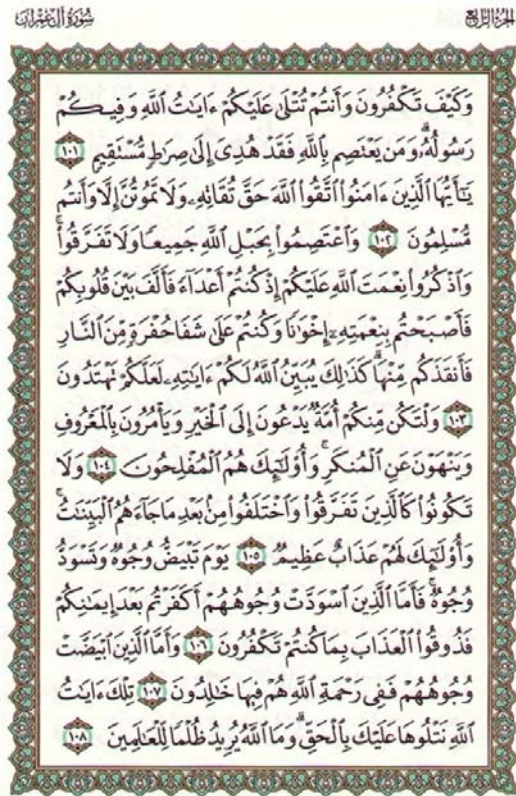 سُورَةُ آلِ عِمْرَانَ
الجُزْءُ الرَّابِعُ
وَكَيْفَ تَكْفُرُونَ وَأَنتُمْ تُتْلَىٰ عَلَيْكُمْ ءَايَٰتُ ٱللَّهِ وَفِيكُمْ
رَسُولُهُۥۗ وَمَن يَعْتَصِم بِٱللَّهِ فَقَدْ هُدِىَ إِلَىٰ صِرَٰطٍ مُّسْتَقِيمٍ ١٠١
يَٰٓأَيُّهَا ٱلَّذِينَ ءَامَنُوا۟ ٱتَّقُوا۟ ٱللَّهَ حَقَّ تُقَاتِهِۦ وَلَا تَمُوتُنَّ إِلَّا وَأَنتُم
مُّسْلِمُونَ ١٠٢ وَٱعْتَصِمُوا۟ بِحَبْلِ ٱللَّهِ جَمِيعًا وَلَا تَفَرَّقُوا۟ۚ
وَٱذْكُرُوا۟ نِعْمَتَ ٱللَّهِ عَلَيْكُمْ إِذْ كُنتُمْ أَعْدَآءً فَأَلَّفَ بَيْنَ قُلُوبِكُمْ
فَأَصْبَحْتُم بِنِعْمَتِهِۦٓ إِخْوَٰنًا وَكُنتُمْ عَلَىٰ شَفَا حُفْرَةٍ مِّنَ ٱلنَّارِ
فَأَنقَذَكُم مِّنْهَاۗ كَذَٰلِكَ يُبَيِّنُ ٱللَّهُ لَكُمْ ءَايَٰتِهِۦ لَعَلَّكُمْ تَهْتَدُونَ
١٠٣ وَلْتَكُن مِّنكُمْ أُمَّةٌ يَدْعُونَ إِلَى ٱلْخَيْرِ وَيَأْمُرُونَ بِٱلْمَعْرُوفِ
وَيَنْهَوْنَ عَنِ ٱلْمُنكَرِۚ وَأُو۟لَٰٓئِكَ هُمُ ٱلْمُفْلِحُونَ ١٠٤ وَلَا
تَكُونُوا۟ كَٱلَّذِينَ تَفَرَّقُوا۟ وَٱخْتَلَفُوا۟ مِنۢ بَعْدِ مَا جَآءَهُمُ ٱلْبَيِّنَٰتُۚ
وَأُو۟لَٰٓئِكَ لَهُمْ عَذَابٌ عَظِيمٌ ١٠٥ يَوْمَ تَبْيَضُّ وُجُوهٌ وَتَسْوَدُّ
وُجُوهٌۚ فَأَمَّا ٱلَّذِينَ ٱسْوَدَّتْ وُجُوهُهُمْ أَكَفَرْتُم بَعْدَ إِيمَٰنِكُمْ
فَذُوقُوا۟ ٱلْعَذَابَ بِمَا كُنتُمْ تَكْفُرُونَ ١٠٦ وَأَمَّا ٱلَّذِينَ ٱبْيَضَّتْ
وُجُوهُهُمْ فَفِى رَحْمَةِ ٱللَّهِ هُمْ فِيهَا خَٰلِدُونَ ١٠٧ تِلْكَ ءَايَٰتُ
ٱللَّهِ نَتْلُوهَا عَلَيْكَ بِٱلْحَقِّۗ وَمَا ٱللَّهُ يُرِيدُ ظُلْمًا لِّلْعَٰلَمِينَ ١٠٨